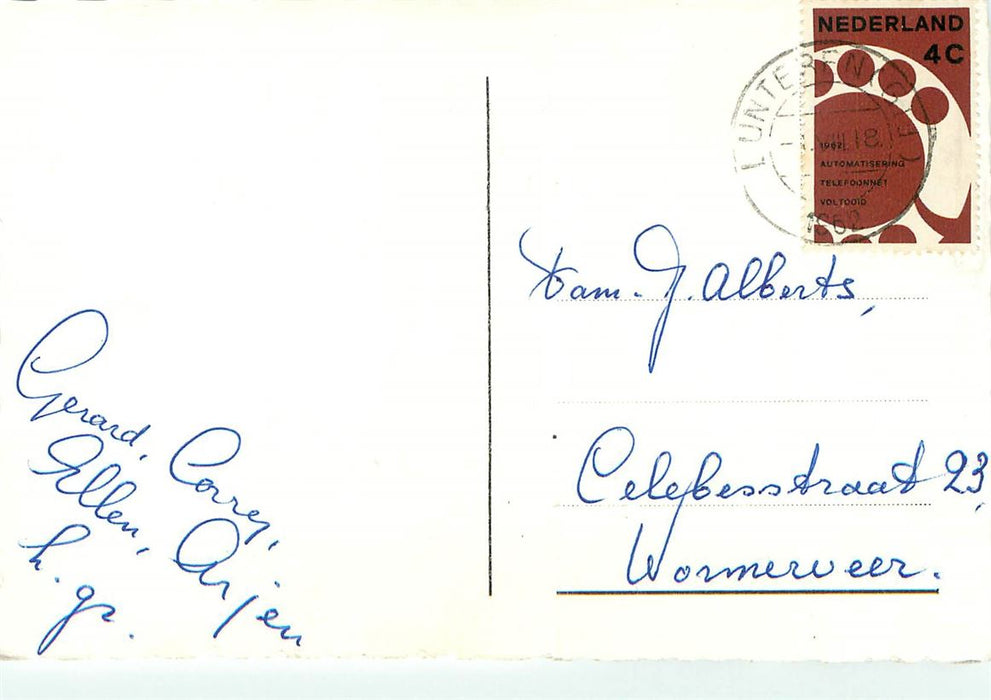 NEDERLAND
4 C
1962
AUTOMATISERING
TELEFOONNET
VOLTOOID
LUNTEREN (GLD)
VIII.18
1962
Fam. J. Alberts,
Celebesstraat 23,
Wormerveer.
Gerard, Correy,
Ellen, Arjen
h. gr.